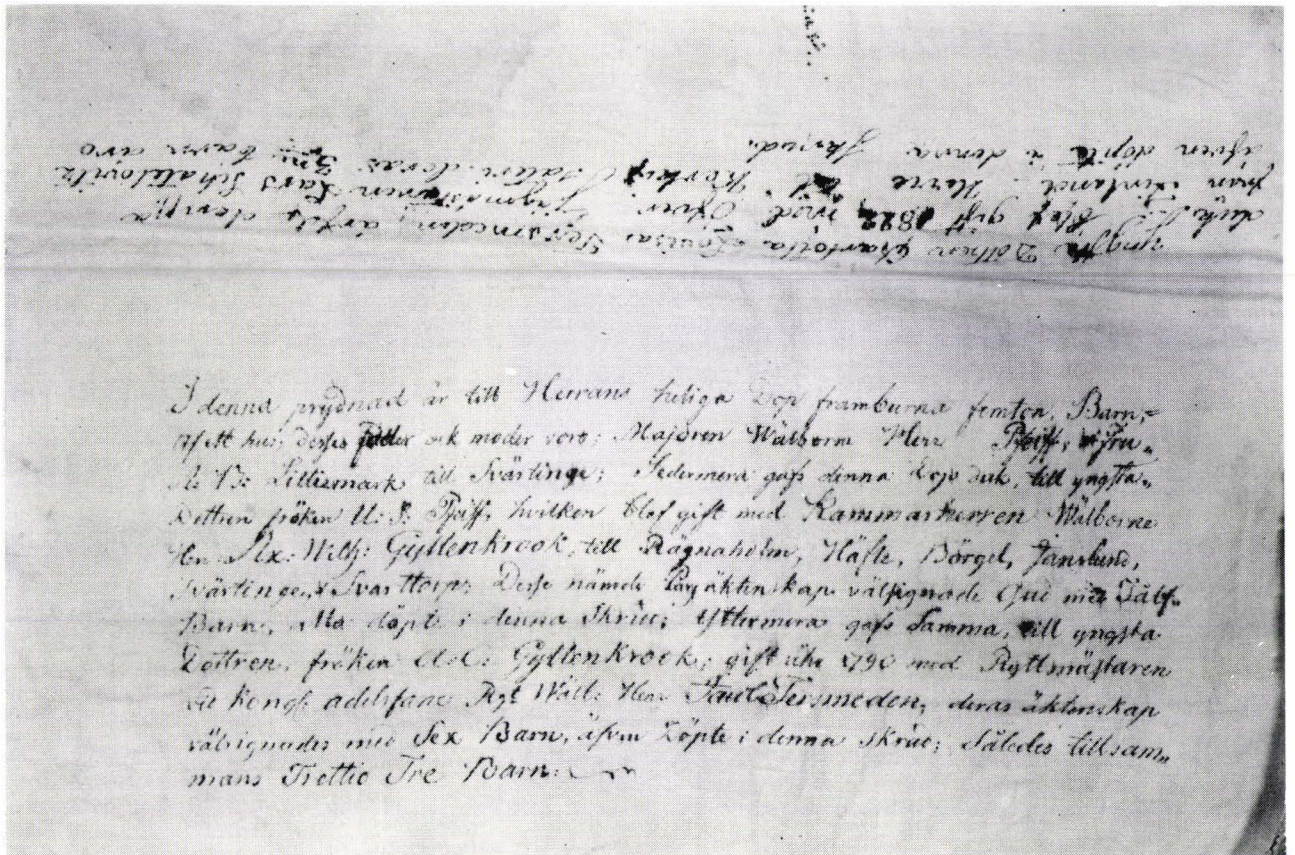 Yngsta Dottren Charlotta Lovisa Tersmeden, ärfde denna
duk. Blef gift 1822 med Öfver Jägmästaren Lars Schatelovitz
från Finland. Herre til Kerkis Säteri. deras Sju barn äro
äfven döpte i denna Skrud.
I denna prydnad är till Herrans heliga Dop framburna femton Barn,=
af ett hus, desses fader och moder voro: Majoren Wälborne Herr Pfeiff, & Fru
Lilliesmark till Svärtinge; Sedermera gafs denna Dop duk, till yngsta
Dottren fröken U: S. Pfeiff, hvilken blef gift med Kammarherren Wälborne
Herr Ax: Wilh: Gyllenkrook, till Rägnaholm, Häfle, Börgel, Janslund,
Svärtinge, & Svarttorp; Desse nämde Pars äktenskap välsignade Gud med Tålf
Barn, alla döpte i denna Skrud; Yttermera gafs Samma, till yngsta
Dottren, fröken Gyllenkrook; gift åhr 1790 med Ryttmästaren
vid Kongl: adelsfane Rgt Wälb: Herr Paul Tersmeden, deras äktenskap
välsignades med Sex Barn, äfven Döpte i denna skrud; Således tillsam„
mans Trettio Tre Barn.